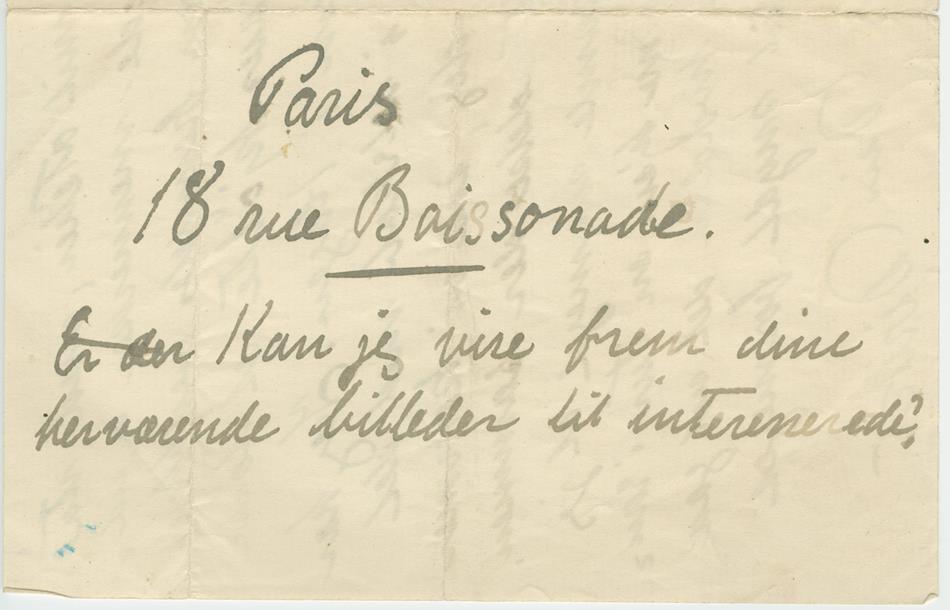 Paris
18 rue Boissonade.
Er der Kan jeg vise frem dine
herværende billeder til interesserede?